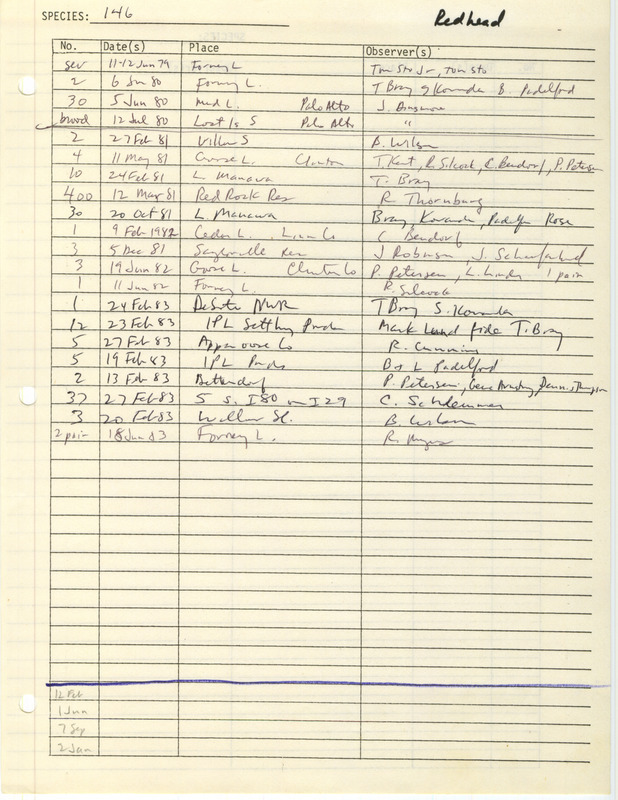 SPECIES: 146 Redhead
No. Date(s) Place Observer(s)
sev 11-12 Jun 79 Forney L
2 6 Jun 80 Forney L. T Bray B. Padelford
30 5 Jun 80 Mud L. Palo Alto J. Dinsmore
brood 12 Jul 80 Lost Is S Palo Alto "
2 27 Feb 81 Willow S B. Wilson
4 11 May 81 Goose L. Clinton T. Kent, R. Silcock, C. Bendorf, P. Petersen
10 24 Feb 81 L Manawa T. Bray
400 12 Mar 81 Red Rock Res R Thornburg
30 20 Oct 81 L Manawa Bray, Kovanda, Padelf Rose
1 9 Feb 1982 Cedar L. Linn Co C Bendorf
3 5 Dec 81 Saylorville Res J Robinson, J. Schaufenbuel
3 19 Jun 82 Goose L. Clinton Co P. Petersen, 1 pair
1 11 Jun 82 Forney L. R. Silcock
1 24 Feb 83 DeSoto NWR T Bray S. Kovanda
12 23 Feb 83 IPL Settling Pnds Mark fide T. Bray
5 27 Feb 83 Appanoose Co R. Cummins
5 19 Feb 83 IPL Pnds B & L Padelford
2 13 Feb 83 Bettendorf P. Petersen,
37 27 Feb 83 5 s. I80 on I29 C. Schlemmer
3 20 Feb 83 Willow Sl. B. Wilson
2 pair 18 Jun 83 Forney L. R.
12 Feb
1 Jun
7 Sep
2 Jan